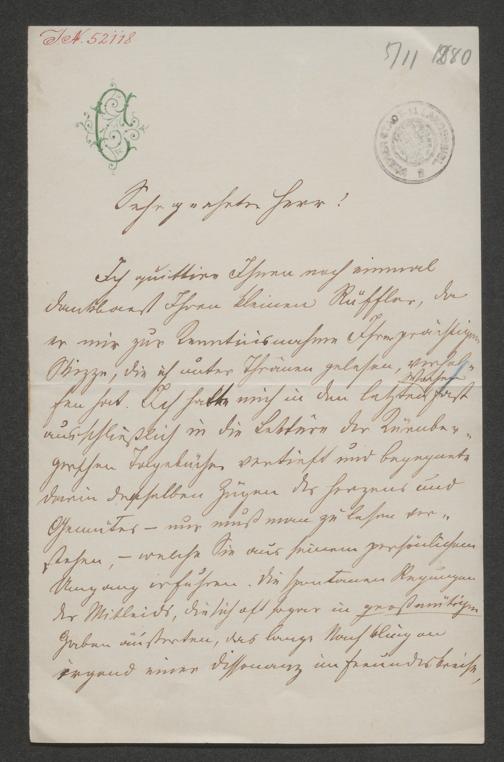 I.N. 52118
5/11 1880
Sehr geehrter Herr!
Ich quittire Ihnen noch einmal
dankbarst Ihren kleinen Rüffler, da
er mir zur Kenntnisnahme Ihrer prächtigen
Skizze, die ich unter Thränen gelesen, verhol-
fen hat. Ich hatte mich in den letzten Wochen fast
ausschließlich in die Lektüre der Kürnber-
ger'schen Tagebücher vertieft und begegnete
darin denselben Zügen des Herzens und
Gemütes – nur muß man zu lesen ver-
stehen, – welche Sie aus seinem persönlichen
Umgang erfuhren. Die spontanen Regungen
des Mitleids, die sich oft sogar in großmütigen
Gaben äußerten, das lange Nachklingen
irgend einer Dissonanz im Freundeskreise,